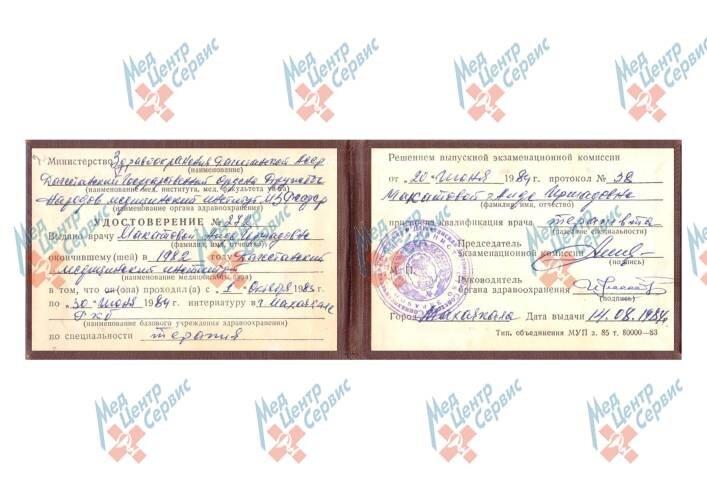 Мед Центр Сервис
Мед Центр Сервис
Мед Центр Сервис
Мед Центр Сервис
Министерство Здравоохранения Дагестанской
(наименование)
Дагестанский Государственный Ордена Дружбы
(наименование мед. института, мед. факультета ун-та)
Народов медицинский институт МЗ
(наименование органа здравоохранения)
УДОСТОВЕРЕНИЕ №
Выдано врачу Макатовой Аиде
(фамилия, имя, отчество)
окончившему (шей) в 1982 году Дагестанский
медицинский институт
(наименование медицинского вуза)
в том, что он(она) проходил(а) с „1 Октября 1983г.
по „30" июня 1984г. интернатуру в г. Махачкале
(наименование базового учреждения здравоохранения)
по специальности терапия
Решением выпускной экзаменационной комиссии
от „20" июня 1984г. протокол № 38
Макатовой Аиде
(фамилия, имя, отчество)
присвоена квалификация врача терапевта
(название специальности)
Председатель
экзаменационной комиссии
(подпись)
М. П.
Руководитель
органа здравоохранения
(подпись)
Город Махачкала Дата выдачи 14.08.1984г.
Тип. объединения МУП з. 85 т. 80000—83
Мед Центр Сервис
Мед Центр Сервис
Мед Центр Сервис
Мед Центр Сервис